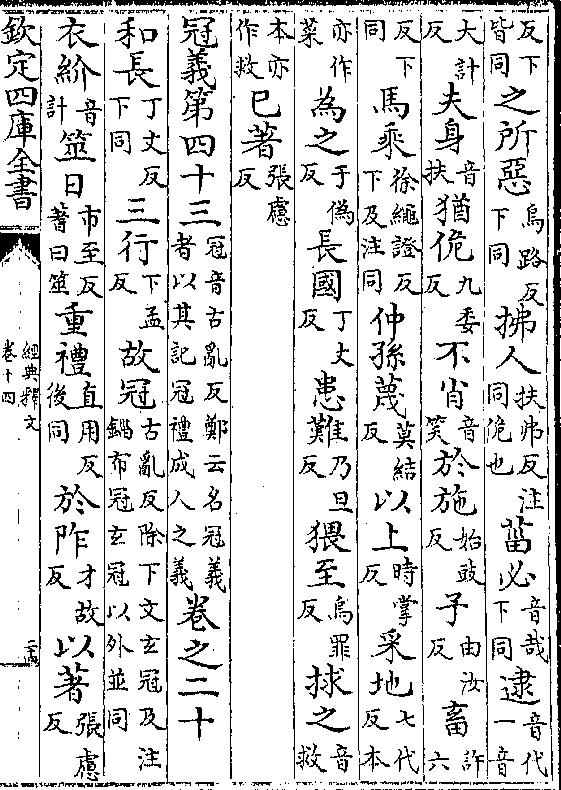 反下皆同之所惡烏路反下同拂人扶弗反注同佹也菑必音哉下同逮音代一音
大計反夫身音扶猶佹九委反不肖音笑於施始豉反予由汝反畜許六
反下同馬乘徐繩證反下及注同仲孫蔑莫結反以上時掌反采地七代反本
亦作菜為之于偽反長國丁丈反患難乃旦反猥至烏罪反捄之音救
本亦作救巳著張慮反
冠義第四十三冠音古亂反鄭云名冠義者以其記冠禮成人之義卷之二十
和長丁丈反下同三行下孟反故冠古亂反除下文玄冠及注緇布冠玄冠以外並同
衣紒音計筮日市至反蓍曰筮重禮直用反後同於阼才故反以著張慮反
欽定四庫全書
經典釋文
卷十四